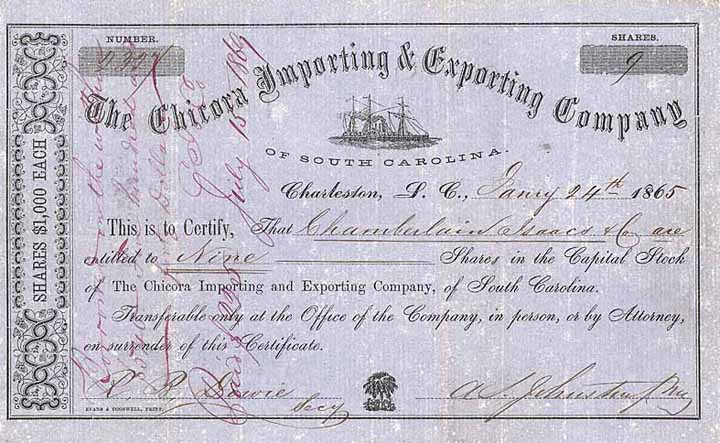 NUMBER.
SHARES.
9
The Chicora Importing & Exporting Company
OF SOUTH CAROLINA.
Charleston, S. C., Jany 24th 1865
This is to Certify, That Chamberlain Isaacs & Co are
entitled to Nine Shares in the Capital Stock
of The Chicora Importing and Exporting Company, of South Carolina.
Transferable only at the Office of the Company, in person, or by Attorney,
on surrender of this Certificate.
Secy
EVANS & COGSWELL, PRINT.
SHARES $1,000 EACH
July 15 1869